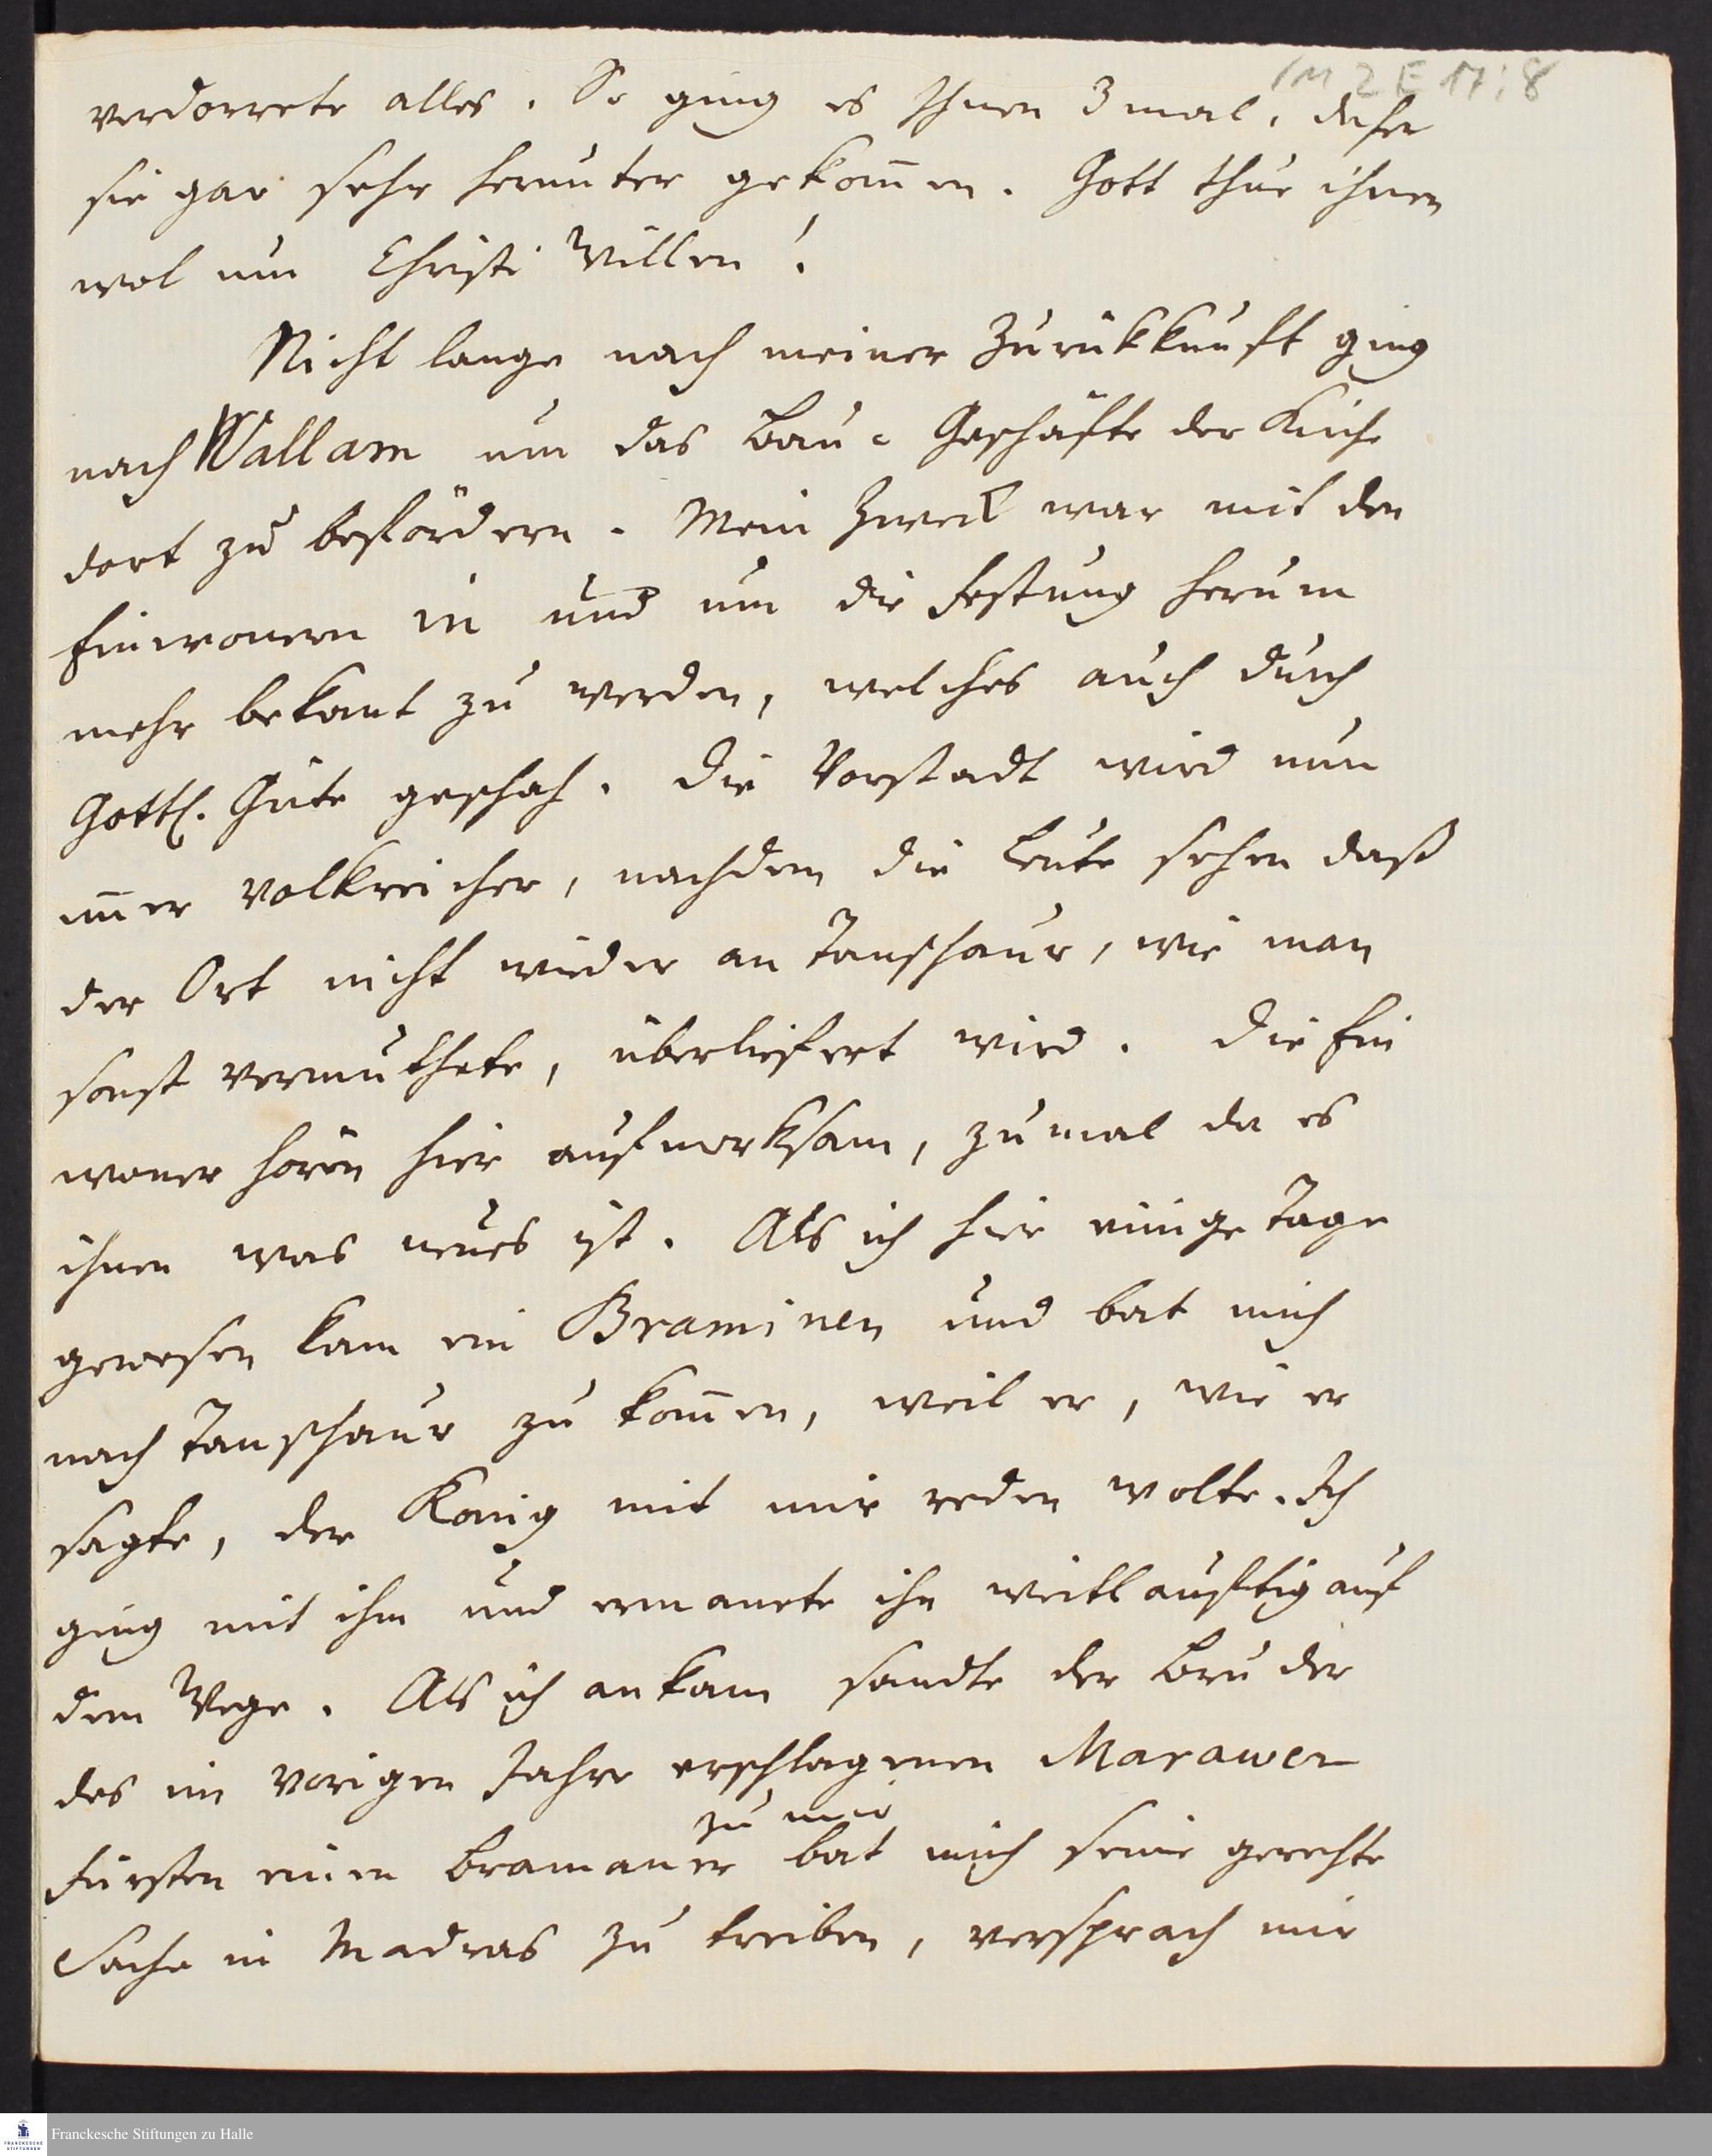 1M 2 E 17:8
verdorrete alles. So ging es Ihnen 3 mal, daher
sie gar sehr herunter gekom̅en. Gott thue ihnen
wol um Christi Willen!
Nicht lange nach meiner Zurükkunft ging
nach Wallam um das Bau-Geschäfte der Kirche
dort zu befördern. Mein Zweck war mit den
Einwonern in und um die Festung herum
mehr bekant zu werden, welches auch durch
Göttl. Güte geschah. Die Vorstadt wird nun
im̅er volkreicher, nachdem die Leute sehen daß
der Ort nicht wieder an Tanschaur, wie man
sonst vermuthete, überliefert wird. Die Ein
woner hören hier aufmerksam, zumal da es
ihnen was neues ist. Als ich hier einige Tage
gewesen kam ein Braminen und bat mich
nach Tanschaur zu kom̅en, weil er, wie er
sagte, der König mit mir reden wolte. Ich
ging mit ihm und ermanete ihn weitläuftig auf
dem Wege. Als ich ankam sandte der Bruder
des im vorigen Jahre erschlagenen Marawer
zu mir
Fürsten einen Bramaner bat mich seine gerechte
Sache in Madras zu treiben, versprach mir
Franckesche Stiftungen zu Halle